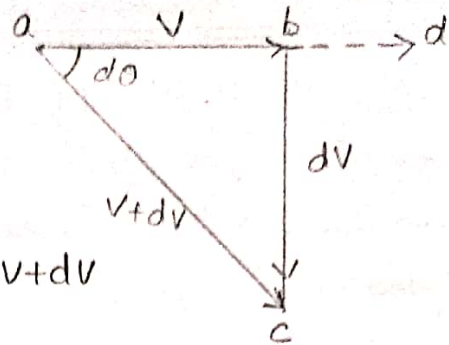 a V b d
dθ
dV
V+dV
V+dV
c